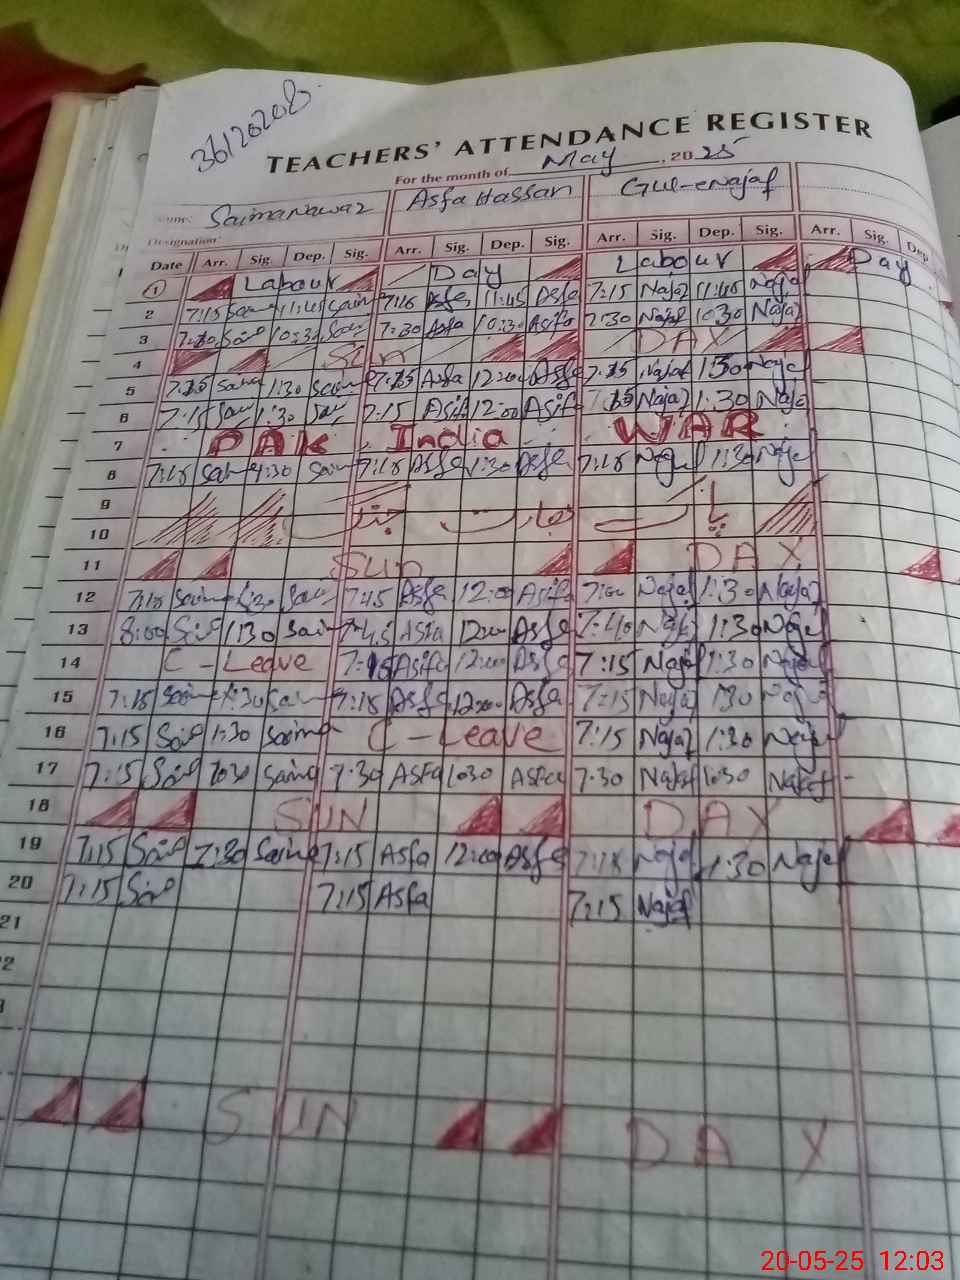 36120208
TEACHERS' ATTENDANCE REGISTER
For the month of May, 2025
Name: Saima Nawaz Asfa Hassan Gul-e Najaf
Designation:
Date Arr. Sig. Dep. Sig. Arr. Sig. Dep. Sig. Arr. Sig. Dep. Sig. Arr. Sig. Dep
1 Labour Day Labour Day
2 7:15 11:45 7:16 11:45 Asfa 7:15 Najaf 11:46
3 7:30 10:30 7:30 Asfa 10:30 7:30 Najaf 10:30 Najaf
4 Sun DAY
5 1:30 Asfa 12:00 Asfa Najaf 1:30 Najaf
6 7:15 1:30 7:15 Asif 12:00 Asif Najaf 1:30 Najaf
7 PAK India WAR
8 7:18 1:30 7:18 Asfa 1:30 Asfa 7:18 Najaf 1:30 Najaf
9
10 جنگ بھارت پاک
11 Sun DAY
12 7:18 1:30 7:45 Asfa 12:00 Asifa 7:00 Najaf 1:30 Najaf
13 8:00 1:30 7:45 Asfa 12:00 Asfa 7:40 Najaf 1:30 Najaf
14 C-Leave Asifa 12:00 Asfa 7:15 Najaf 1:30 Najaf
15 7:18 1:30 7:18 Asfa 12:00 Asfa 7:15 Najaf 1:30 Najaf
16 7:15 1:30 Saima C-Leave 7:15 Najaf 1:30 Najaf
17 7:15 10:30 Saima 7:30 Asfa 10:30 Asfa 7:30 Najaf 10:30 Najaf
18 SUN DAY
19 7:15 Saima 7:15 Asfa 12:00 Asfa 7:18 Najaf 1:30 Najaf
20 7:15 7:15 Asfa 7:15 Najaf
21
2
3
SUN DAY
20-05-25 12:03